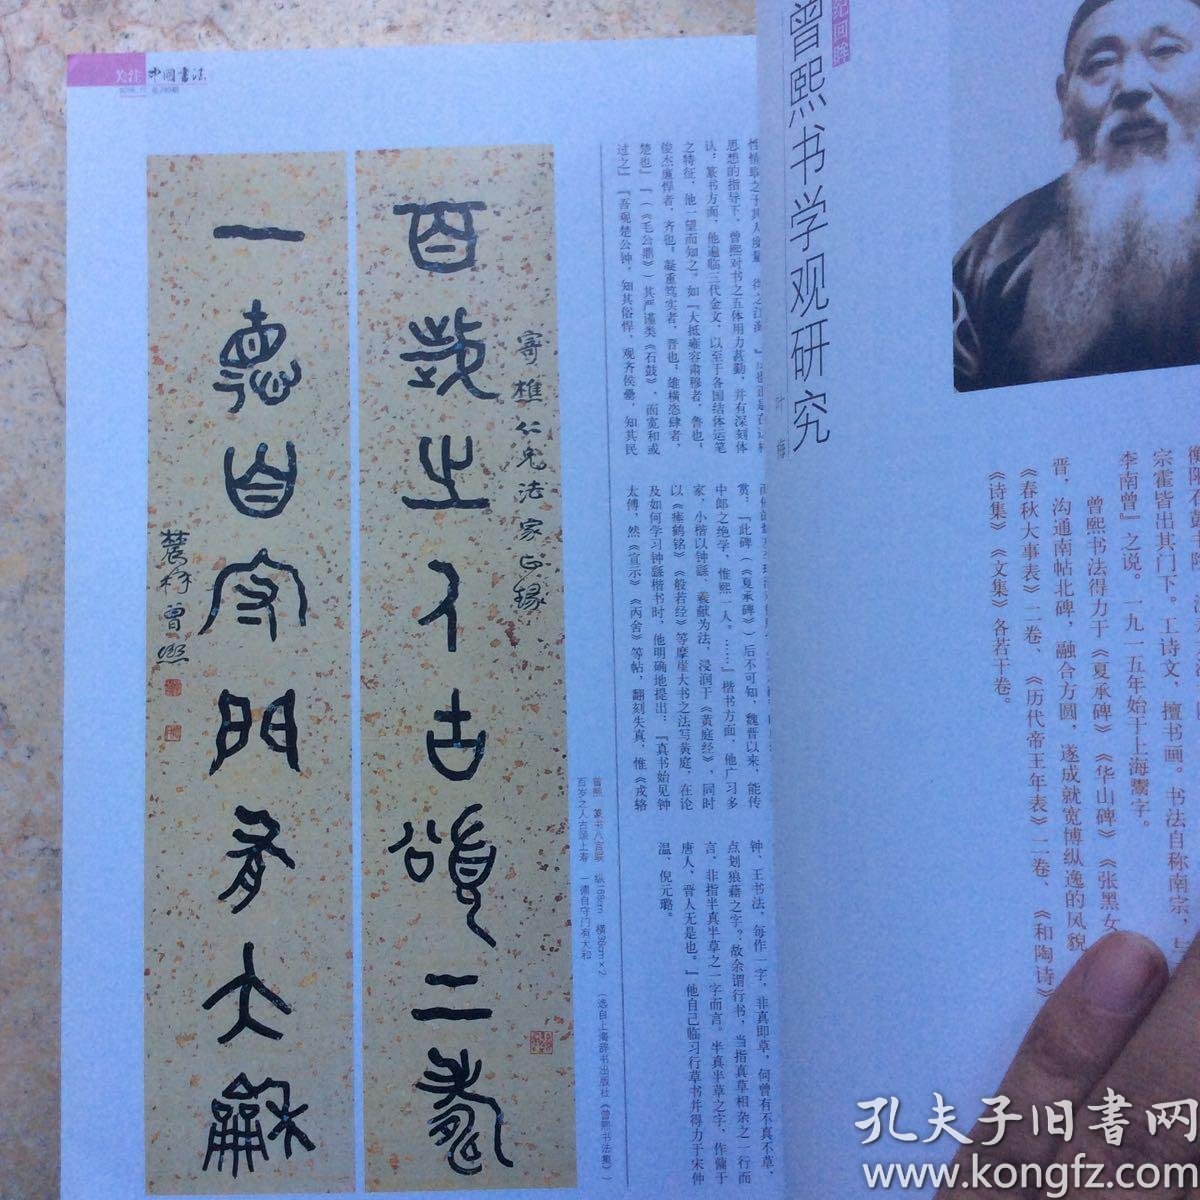 关注 中国书法
百岁之人古颂二寿
寄樵仁兄法家正緣
一德自守门有大和
农髯曾熙
思想的指导下，曾熙对书之五体用力甚勤，并有深刻体
认：篆书方面，他遍临三代金文，以至于各国结体运笔
之特征，他一望而知之。如『大抵雍容肃穆者，鲁也，
俊杰廉悍者，齐也，凝重笃实者，晋也，雄横恣肆者，
楚也』『（《毛公鼎》）其严谨类《石鼓》，而宽和或
过之』『吾观楚公钟，知其俗悍，观齐侯罍，知其民
赏：『此碑（《夏承碑》）后不可知，魏晋以来，能传
中郎之绝学，惟熙一人。……』楷书方面，他广习多
家，小楷以钟繇、羲献为法，浸润于《黄庭经》，同时
以《瘗鹤铭》《般若经》等摩崖大书之法写黄庭，在论
及如何学习钟繇楷书时，他明确地提出：『真书始见钟
太傅，然《宣示》《丙舍》等帖，翻刻失真，惟《戎辂
钟、王书法，每作一字，非真即草，何曾有不真不草，
点划狼藉之字。故余谓行书，当指真草相杂之一行而
言，非指半真半草之一字而言。半真半草之字，作俑于
唐人，晋人无是也。』他自己临习行草书并得力于宋仲
温、倪元璐。
曾熙 篆书八言联 纵168cm 横36cm×2 （选自上海辞书出版社《曾熙书法集》）
百岁之人古颂上寿 一德自守门有大和
纪回眸
曾熙书学观研究
叶梅
宗霍皆出其门下。工诗文，擅书画。书法自称南宗，与
李南曾』之说。一九一五年始于上海鬻字。
曾熙书法得力于《夏承碑》《华山碑》《张黑女
晋，沟通南帖北碑，融合方圆，遂成就宽博纵逸的风貌
《春秋大事表》二卷、《历代帝王年表》二卷、《和陶诗》
《诗集》《文集》各若干卷。
孔夫子旧书网
www.kongfz.com